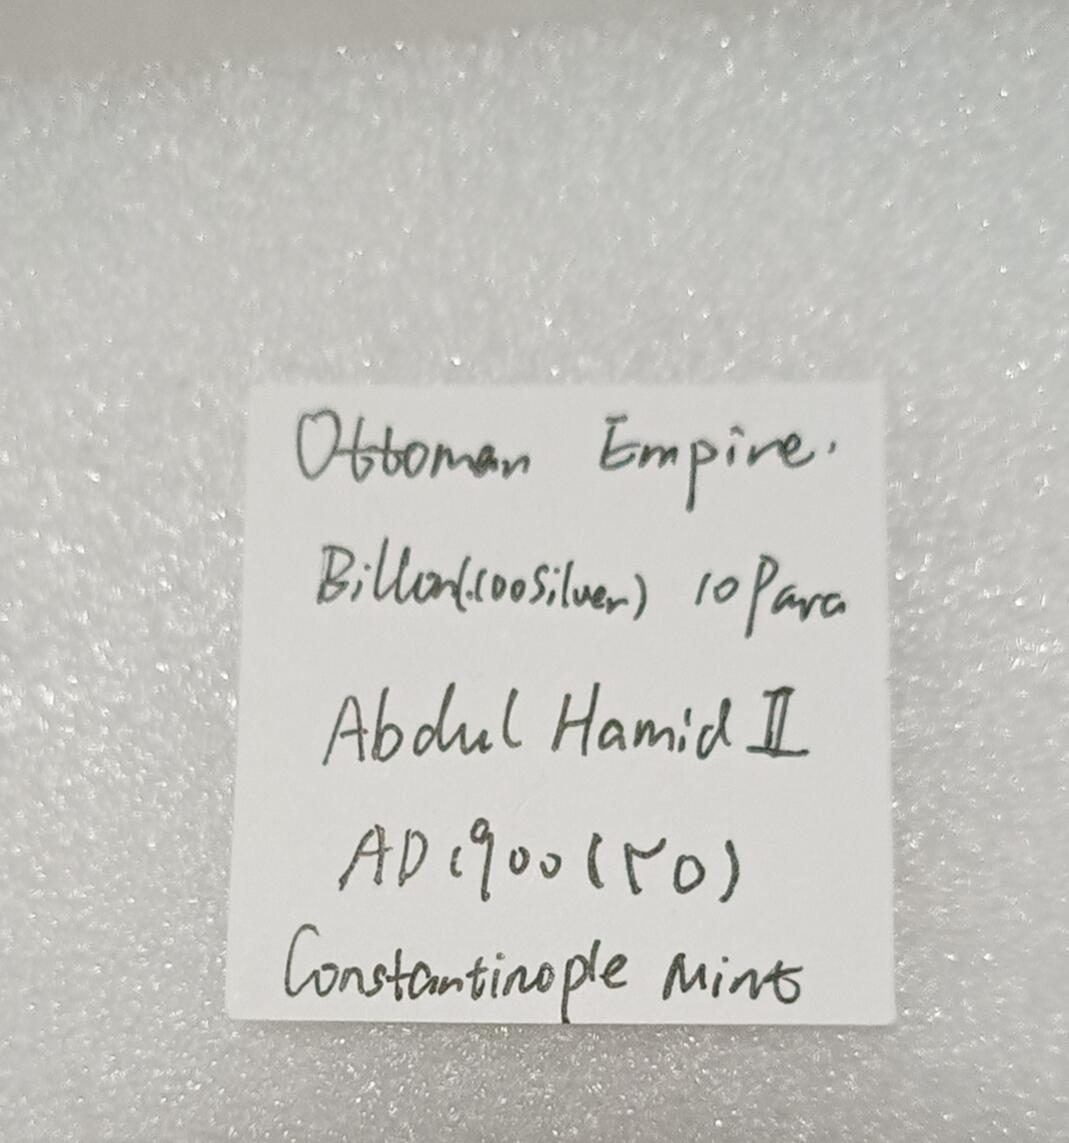 Ottoman Empire.
Billon(.100Silver) 10Para
Abdul Hamid II
AD1900(٢٥)
Constantinople Mint